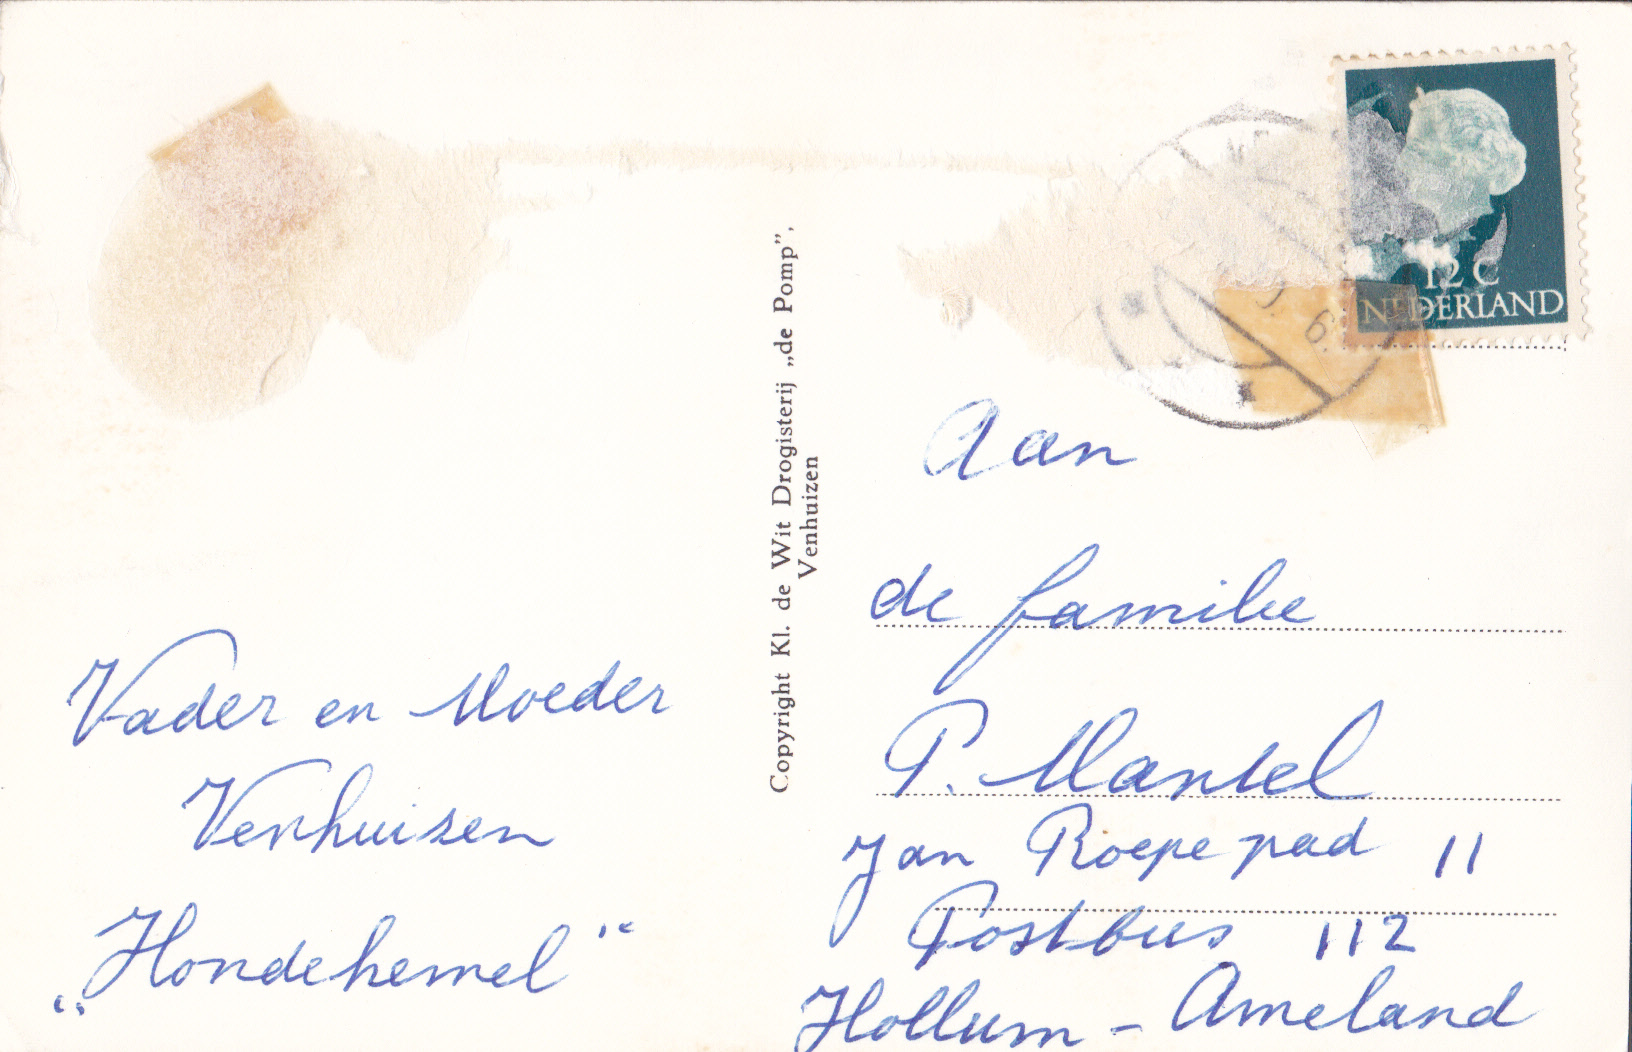 Vader en Moeder
Venhuizen
„Hondehemel"
Copyright Kl. de Wit Drogisterij „de Pomp”,
Venhuizen
12 C
NEDERLAND
Aan
de familie
P. Mantel
Jan Roepe pad 11
Postbus 112
Hollum - Ameland